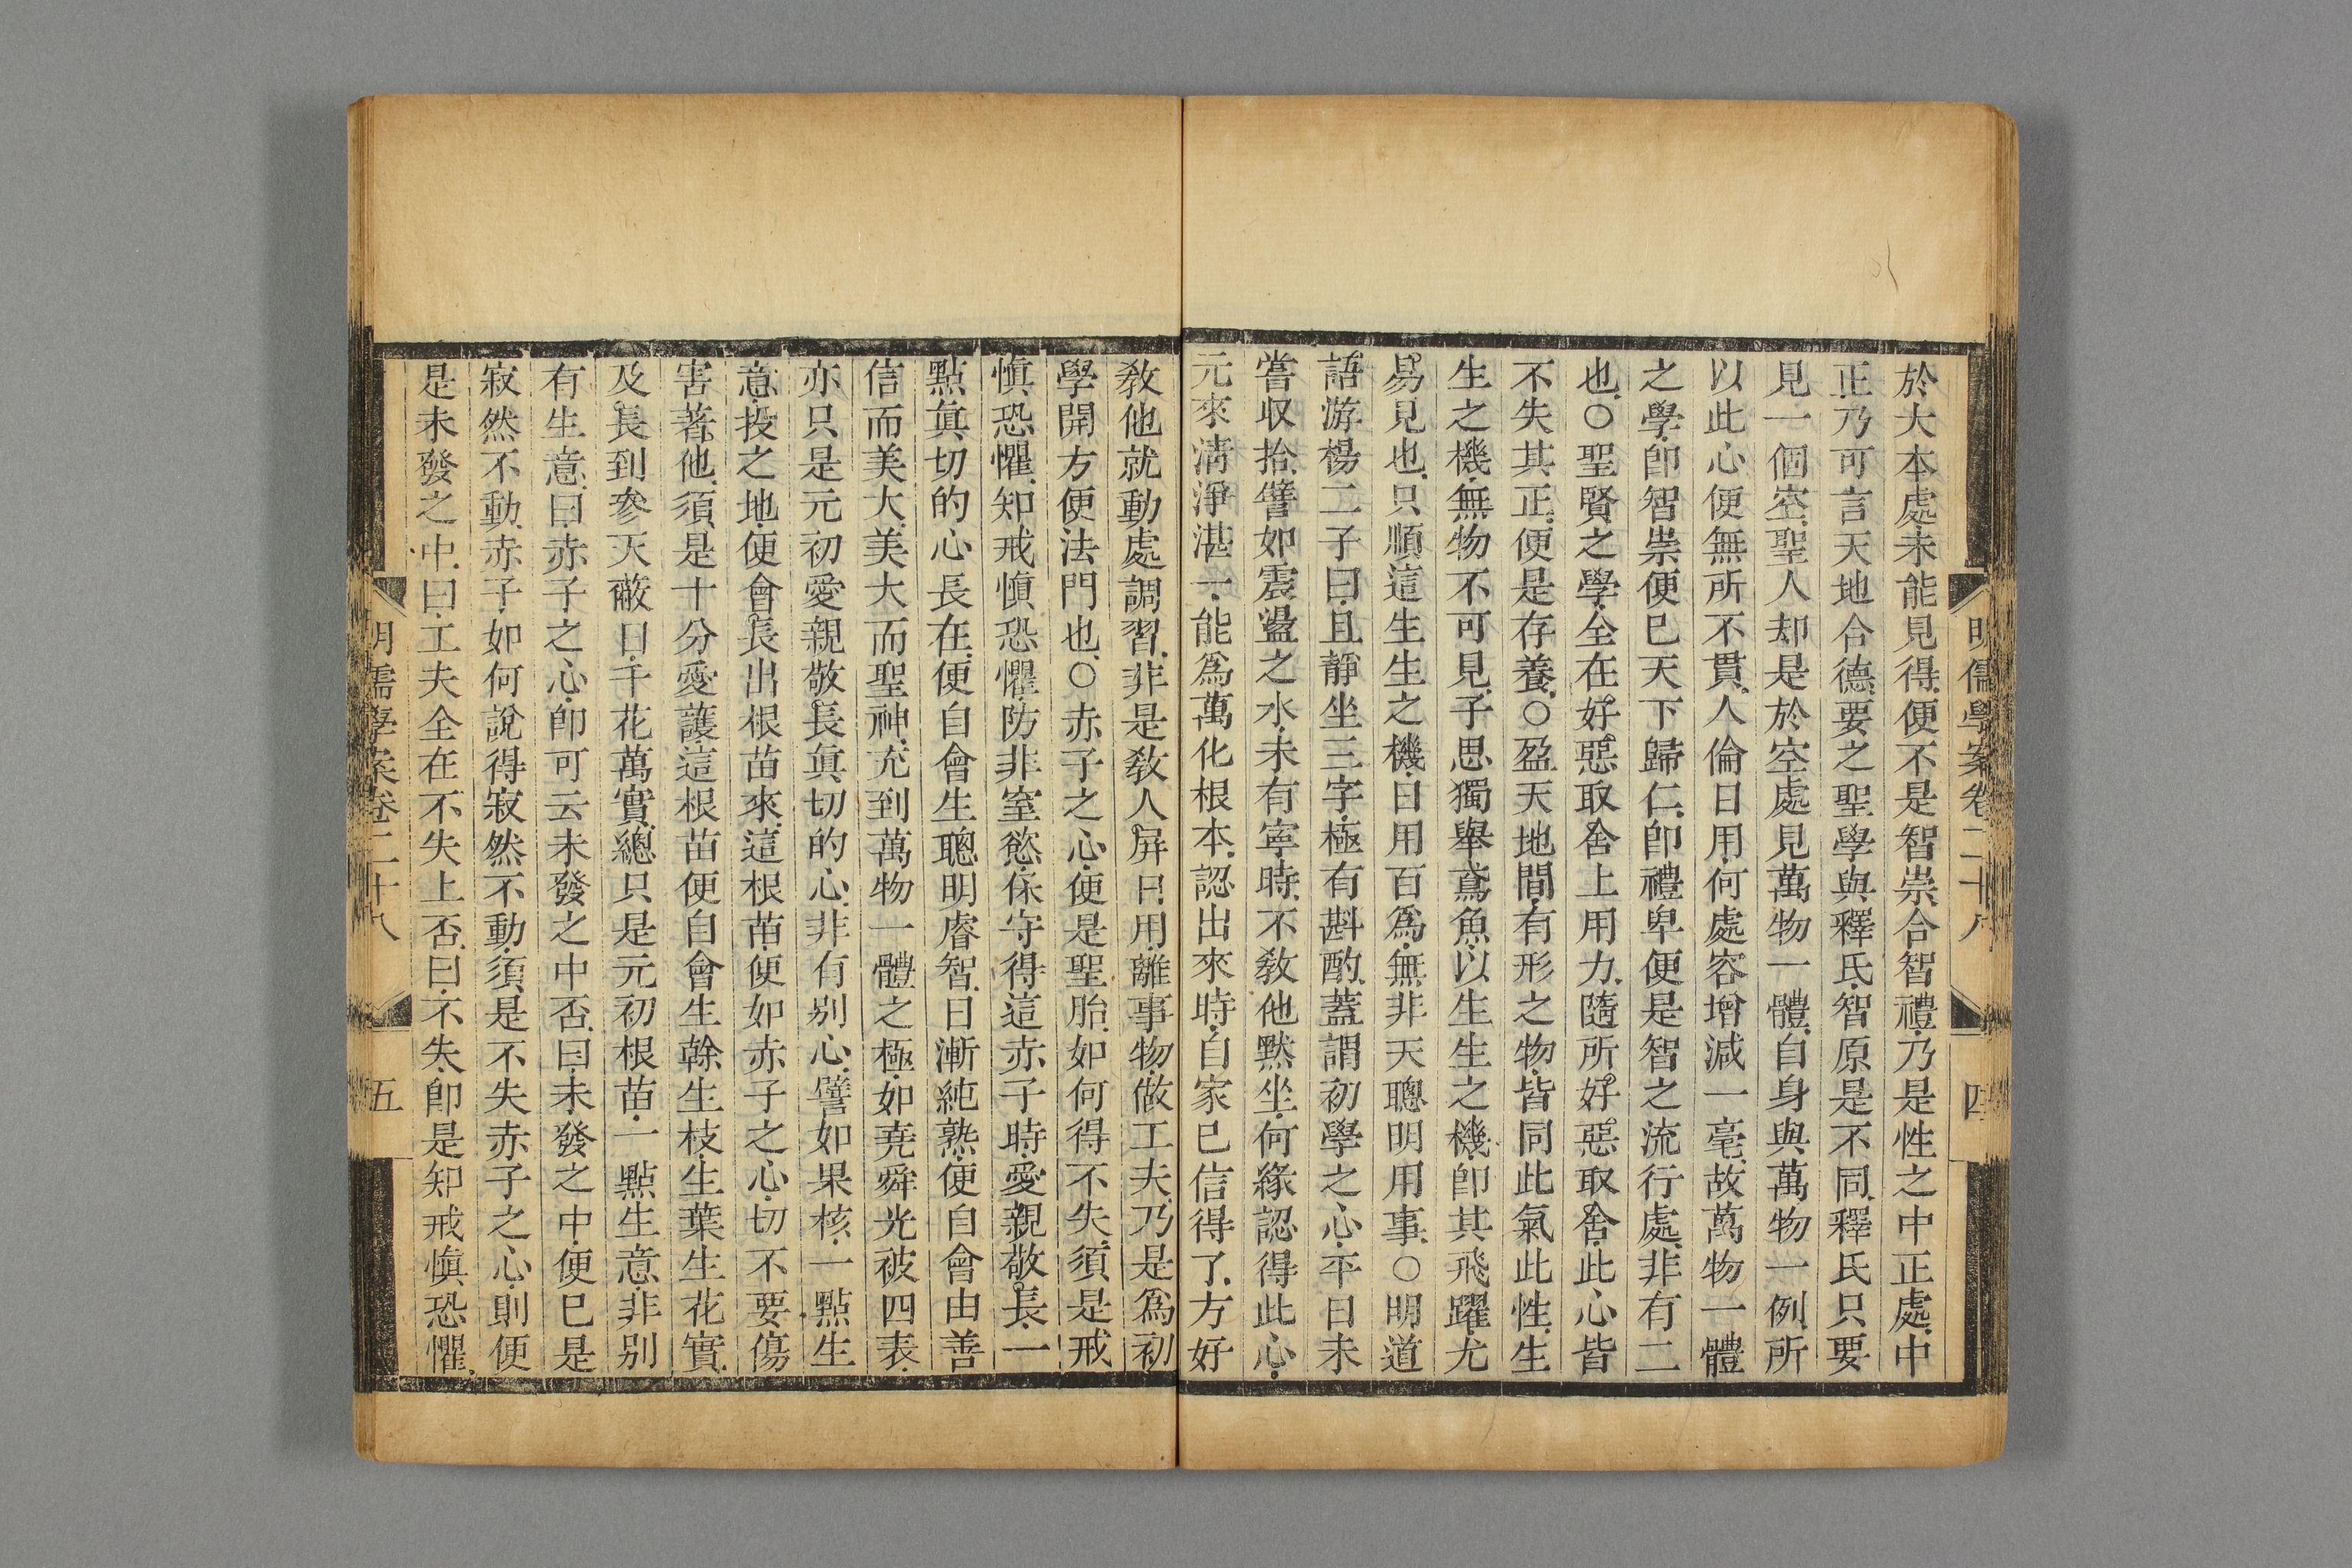 明儒學案卷二十八
四
於大本處未能見得便不是智崇合智禮乃是性之中正處中
正乃可言天地合德要之聖學與釋氏智原是不同釋氏只要
見一個空聖人却是於空處見萬物一體自身與萬物一例所
以此心便無所不貫人倫日用何處容增減一毫故萬物一體
之學卽智崇便已天下歸仁卽禮卑便是智之流行處非有二
也○聖賢之學全在好惡取舍上用力隨所好惡取舍此心皆
不失其正便是存養○盈天地間有形之物皆同此氣此性生
生之機無物不可見子思獨舉鳶魚以生生之機卽其飛躍尤
易見也只順這生生之機日用百爲無非天聰明用事○明道
語游楊二子曰且靜坐三字極有斟酌蓋謂初學之心平日未
嘗収拾譬如震盪之水未有寧時不敎他默坐何緣認得此心
元來淸淨湛一能爲萬化根本認出來時自家已信得了方好
敎他就動處調習非是敎人屏日用離事物做工夫乃是爲初
學開方便法門也○赤子之心便是聖胎如何得不失須是戒
愼恐懼知戒愼恐懼防非窒慾保守得這赤子時愛親敬長一
點眞切的心長在便自會生聰明睿智日漸純熟便自會由善
信而美大美大而聖神充到萬物一體之極如堯舜光被四表
亦只是元初愛親敬長眞切的心非有別心譬如果核一點生
意投之地便會長出根苗來這根苗便如赤子之心切不要傷
害著他須是十分愛護這根苗便自會生榦生枝生葉生花實
及長到參天蔽日千花萬實總只是元初根苗一點生意非別
有生意曰赤子之心卽可云未發之中否曰未發之中便已是
寂然不動赤子如何說得寂然不動須是不失赤子之心則便
是未發之中曰工夫全在不失上否曰不失卽是知戒愼恐懼
明儒學案卷二十八
五